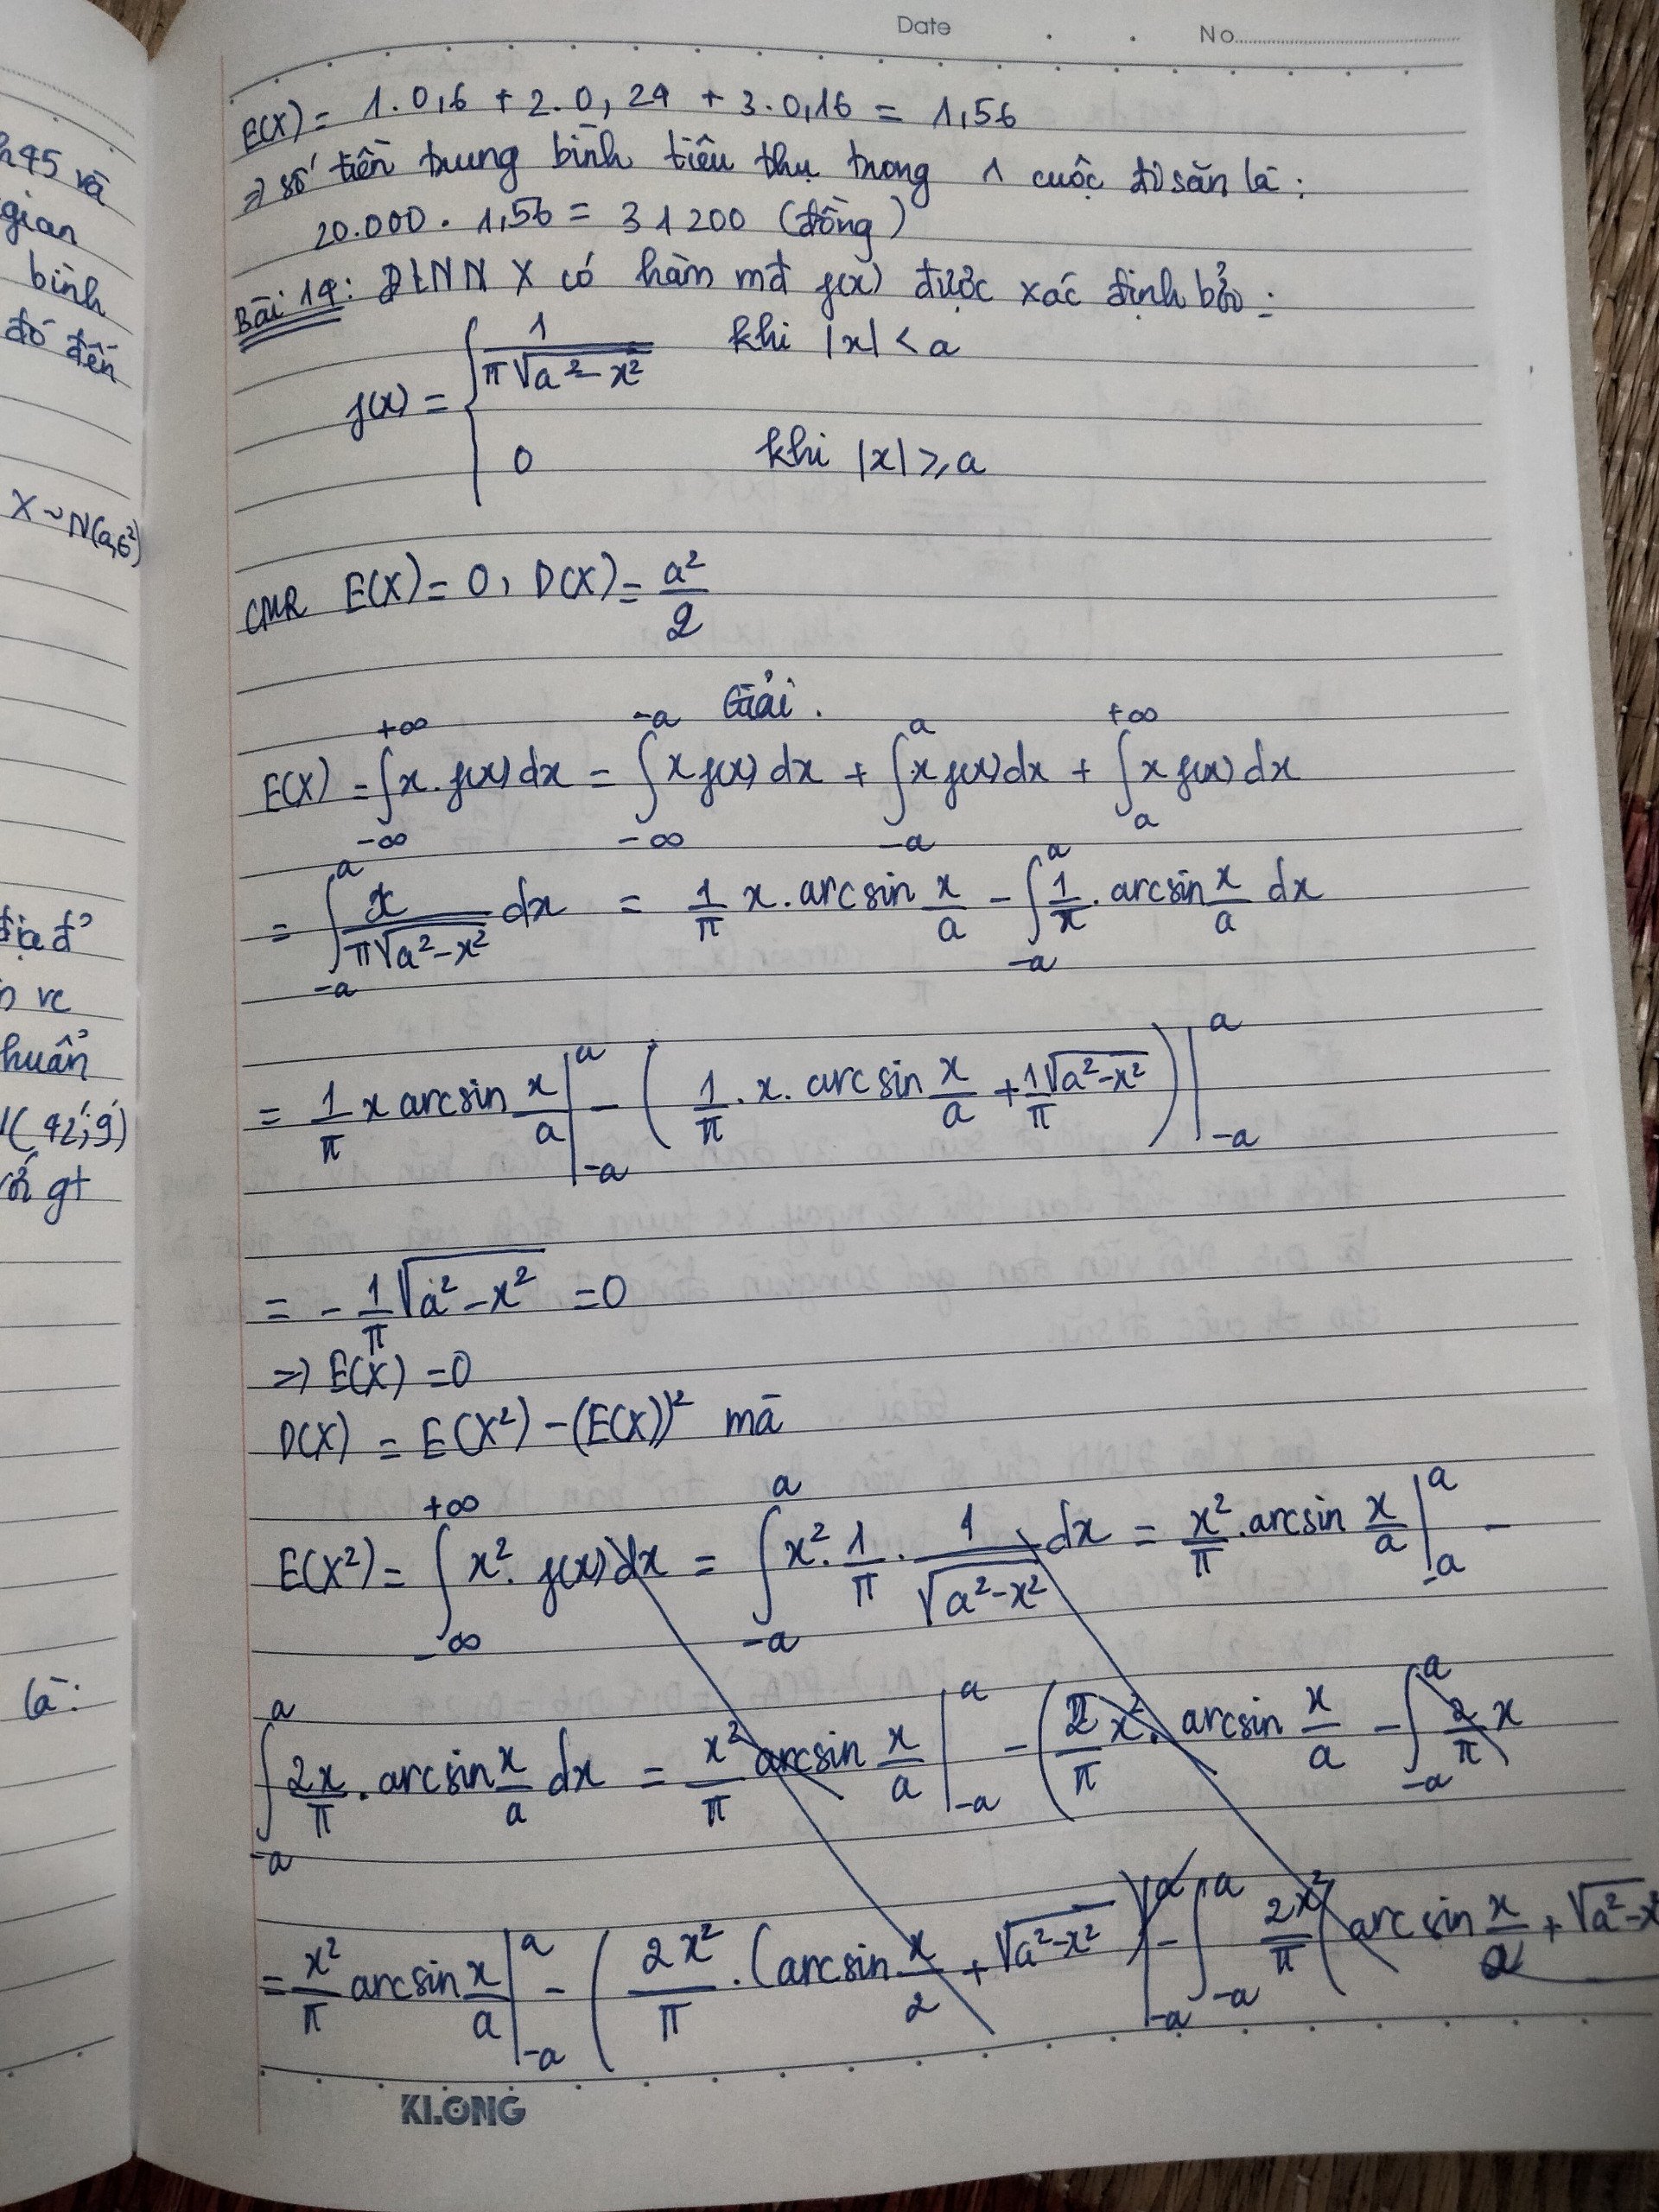 Date No
h45 và
gian
bình
đó đến
X ~ N(a,б²)
n vc
huẩn
N(42;9)
gt
là:
E(X) = 1.0,6 + 2.0,24 + 3.0,16 = 1,56
=> số tiền trung bình tiêu thụ trong 1 cuộc đi săn là:
20.000 . 1,56 = 31200 (đồng)
Bài 14: ĐLNN X có hàm mđ f(x) được xác định bởi:
f(x) = { 1/(π√(a²-x²)) khi |x| < a
0 khi |x| ≥ a
CMR E(X) = 0, D(X) = a²/2
Giải.
E(X) = ∫_{-∞}^{+∞} x.f(x)dx = ∫_{-∞}^{-a} x f(x)dx + ∫_{-a}^{a} x f(x)dx + ∫_{a}^{+∞} x f(x)dx
= ∫_{-a}^{a} x/(π√(a²-x²)) dx = 1/π x.arcsin x/a - ∫_{-a}^{a} 1/π . arcsin x/a dx
= 1/π x arcsin x/a |_{-a}^{a} - (1/π . x. arcsin x/a + 1/π √(a²-x²)) |_{-a}^{a}
= - 1/π √(a²-x²) = 0
=> E(X) = 0
D(X) = E(X²) - (E(X))² mà
E(X²) = ∫_{-∞}^{+∞} x². f(x)dx = ∫_{-a}^{a} x². 1/π . 1/√(a²-x²) dx = x²/π . arcsin x/a |_{-a}^{a} -
∫_{-a}^{a} 2x/π . arcsin x/a dx = x²/π arcsin x/a |_{-a}^{a} - (2/π x². arcsin x/a - ∫_{-a}^{a} 2/π x
= x²/π arcsin x/a |_{-a}^{a} - (2x²/π . (arcsin x/2 + √(a²-x²)) |_{-a}^{a} - ∫_{-a}^{a} 2x²/π (arcsin x/a + √(a²-x²
KLONG